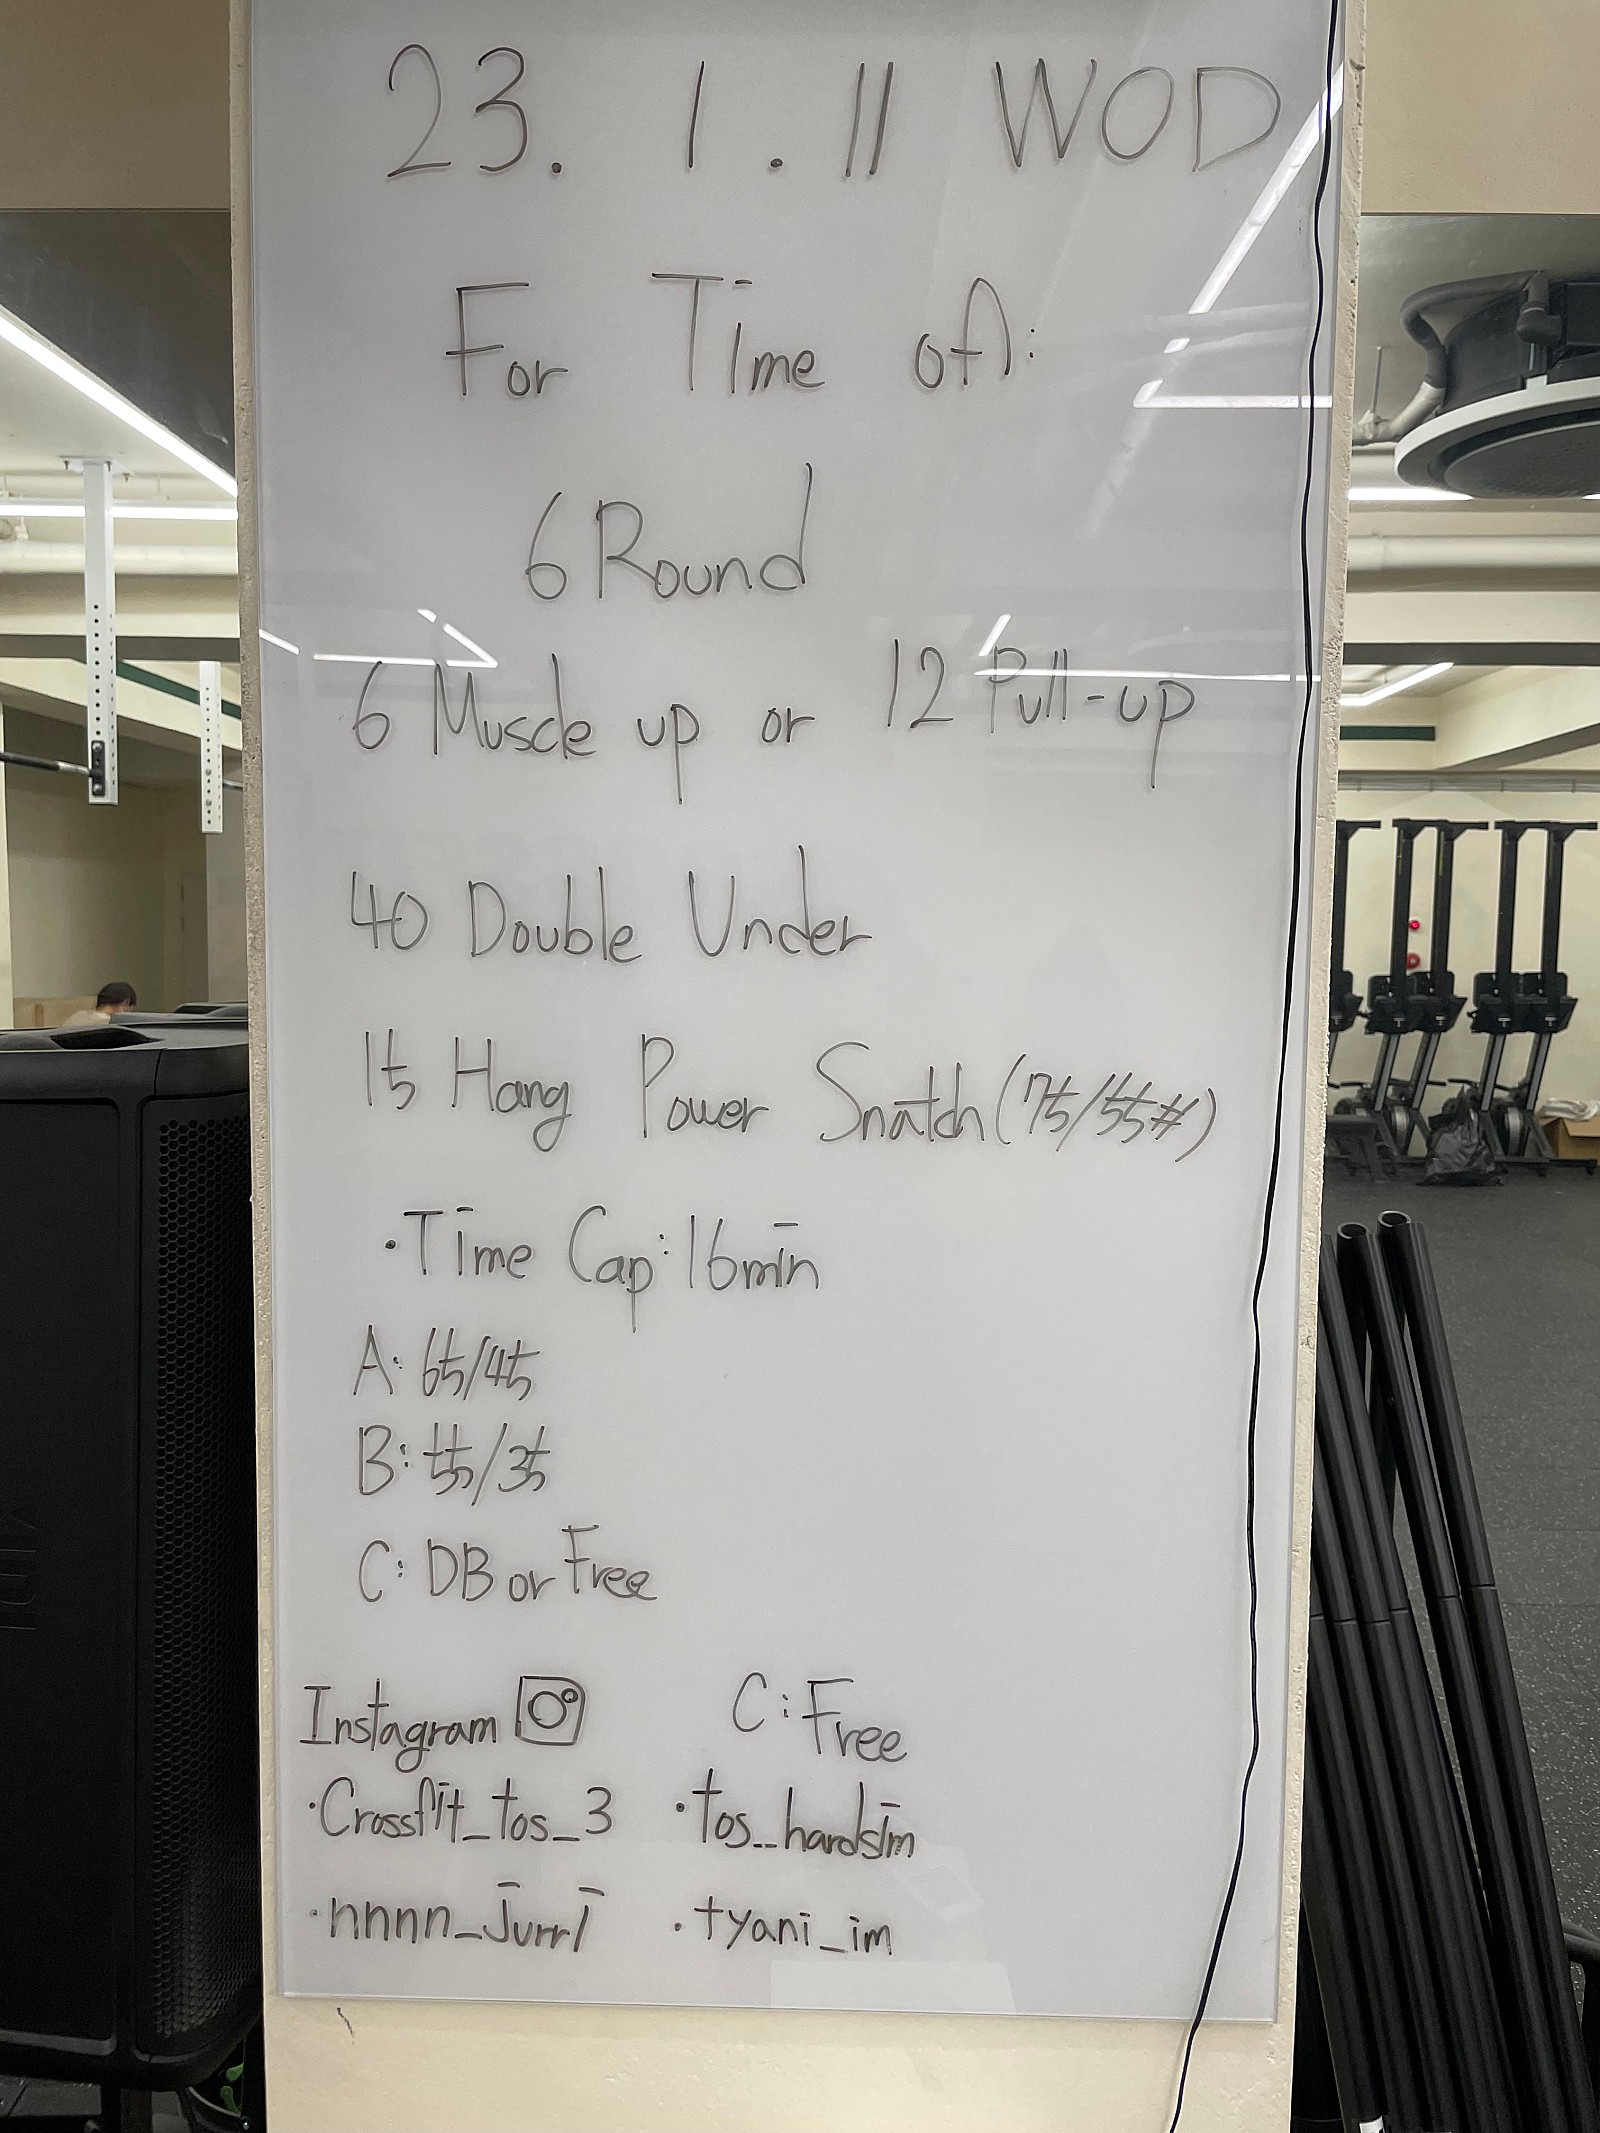 23. 1. 11 WOD
For Time of:
6 Round
6 Muscle up or 12 Pull-up
40 Double Under
15 Hang Power Snatch (75/55#)
• Time Cap: 16min
A: 65/45
B: 55/35
C: DB or Free
Instagram C: Free
• Crossfit_tos_3 • tos_hardsim
• nnnn_jurrl • tyani_im